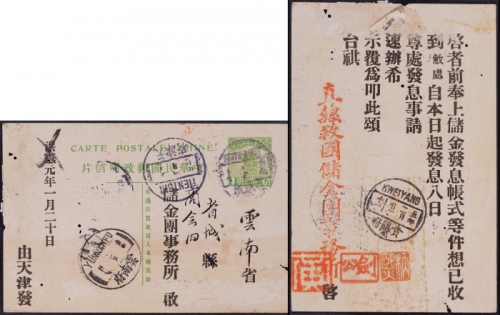 CARTE POSTALE CHINE
中華民國郵政明信片
雲南省
省城 縣
商會內
儲金團事務所 啟
元年一月二十日
由天津發
TIENTSIN
啓者前奉上儲金發息帳式等件想已收
到敝處自本日起發息八日
尊處發息事請
速辦希
示覆爲叩此頌
台祺
直隸救國儲金團事務所 啓
KWEIYANG
貴陽府